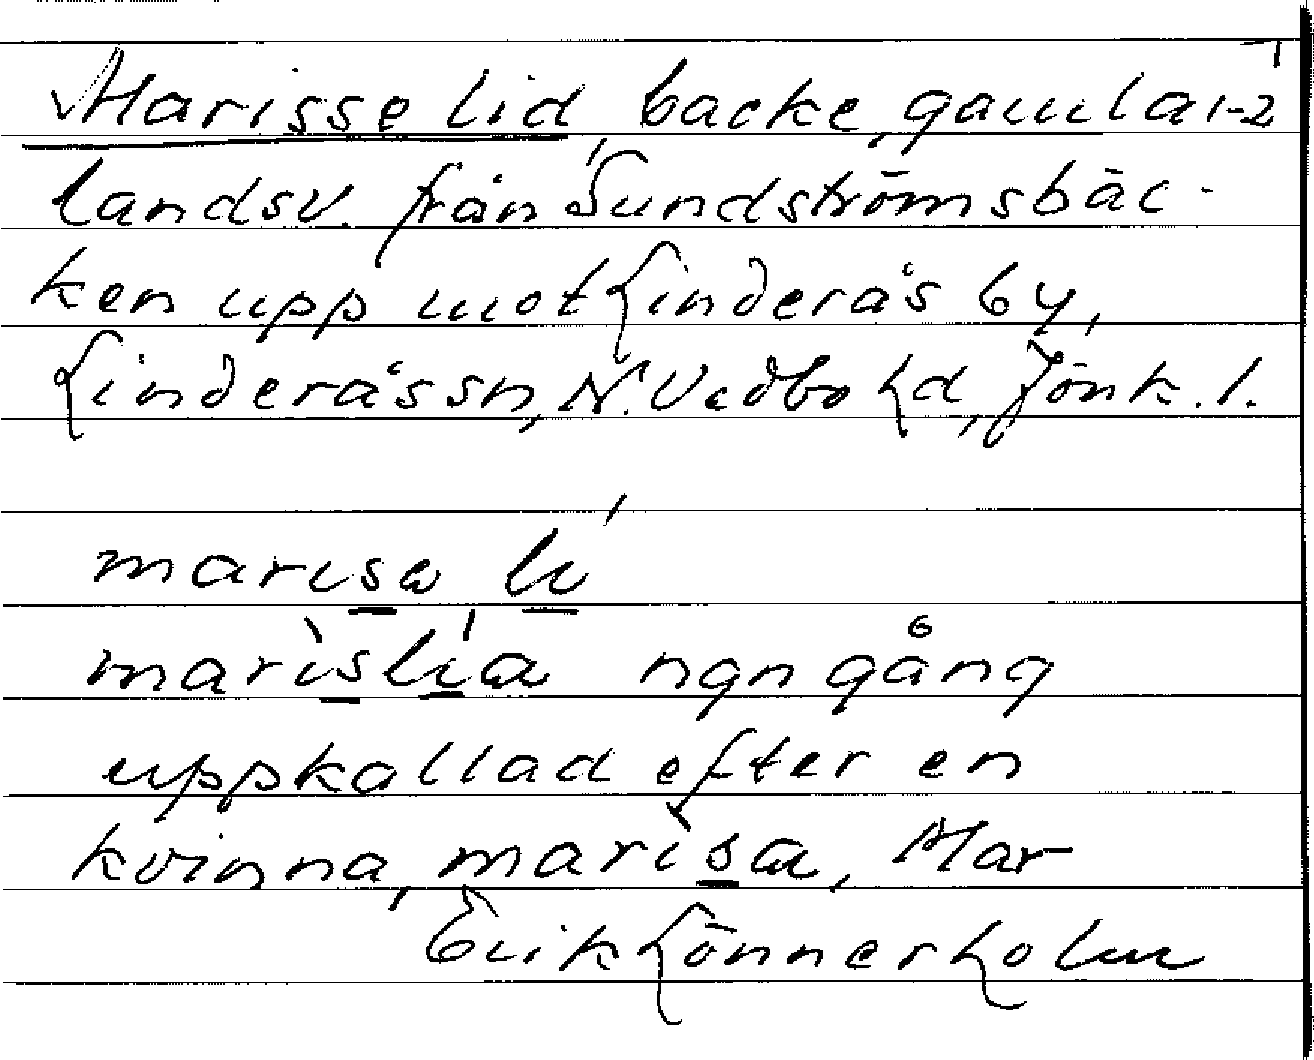 Marisse lid, backe, gamla 1-2
landsv. från Sundströmsbäc-
ken upp mot Linderås by,
Linderås sn, N. Vedbo hd, Jönk. l.
marisa li
marislia ngn gång
uppkallad efter en
kvinna, marisa, Mar
Erik Lönnerholm